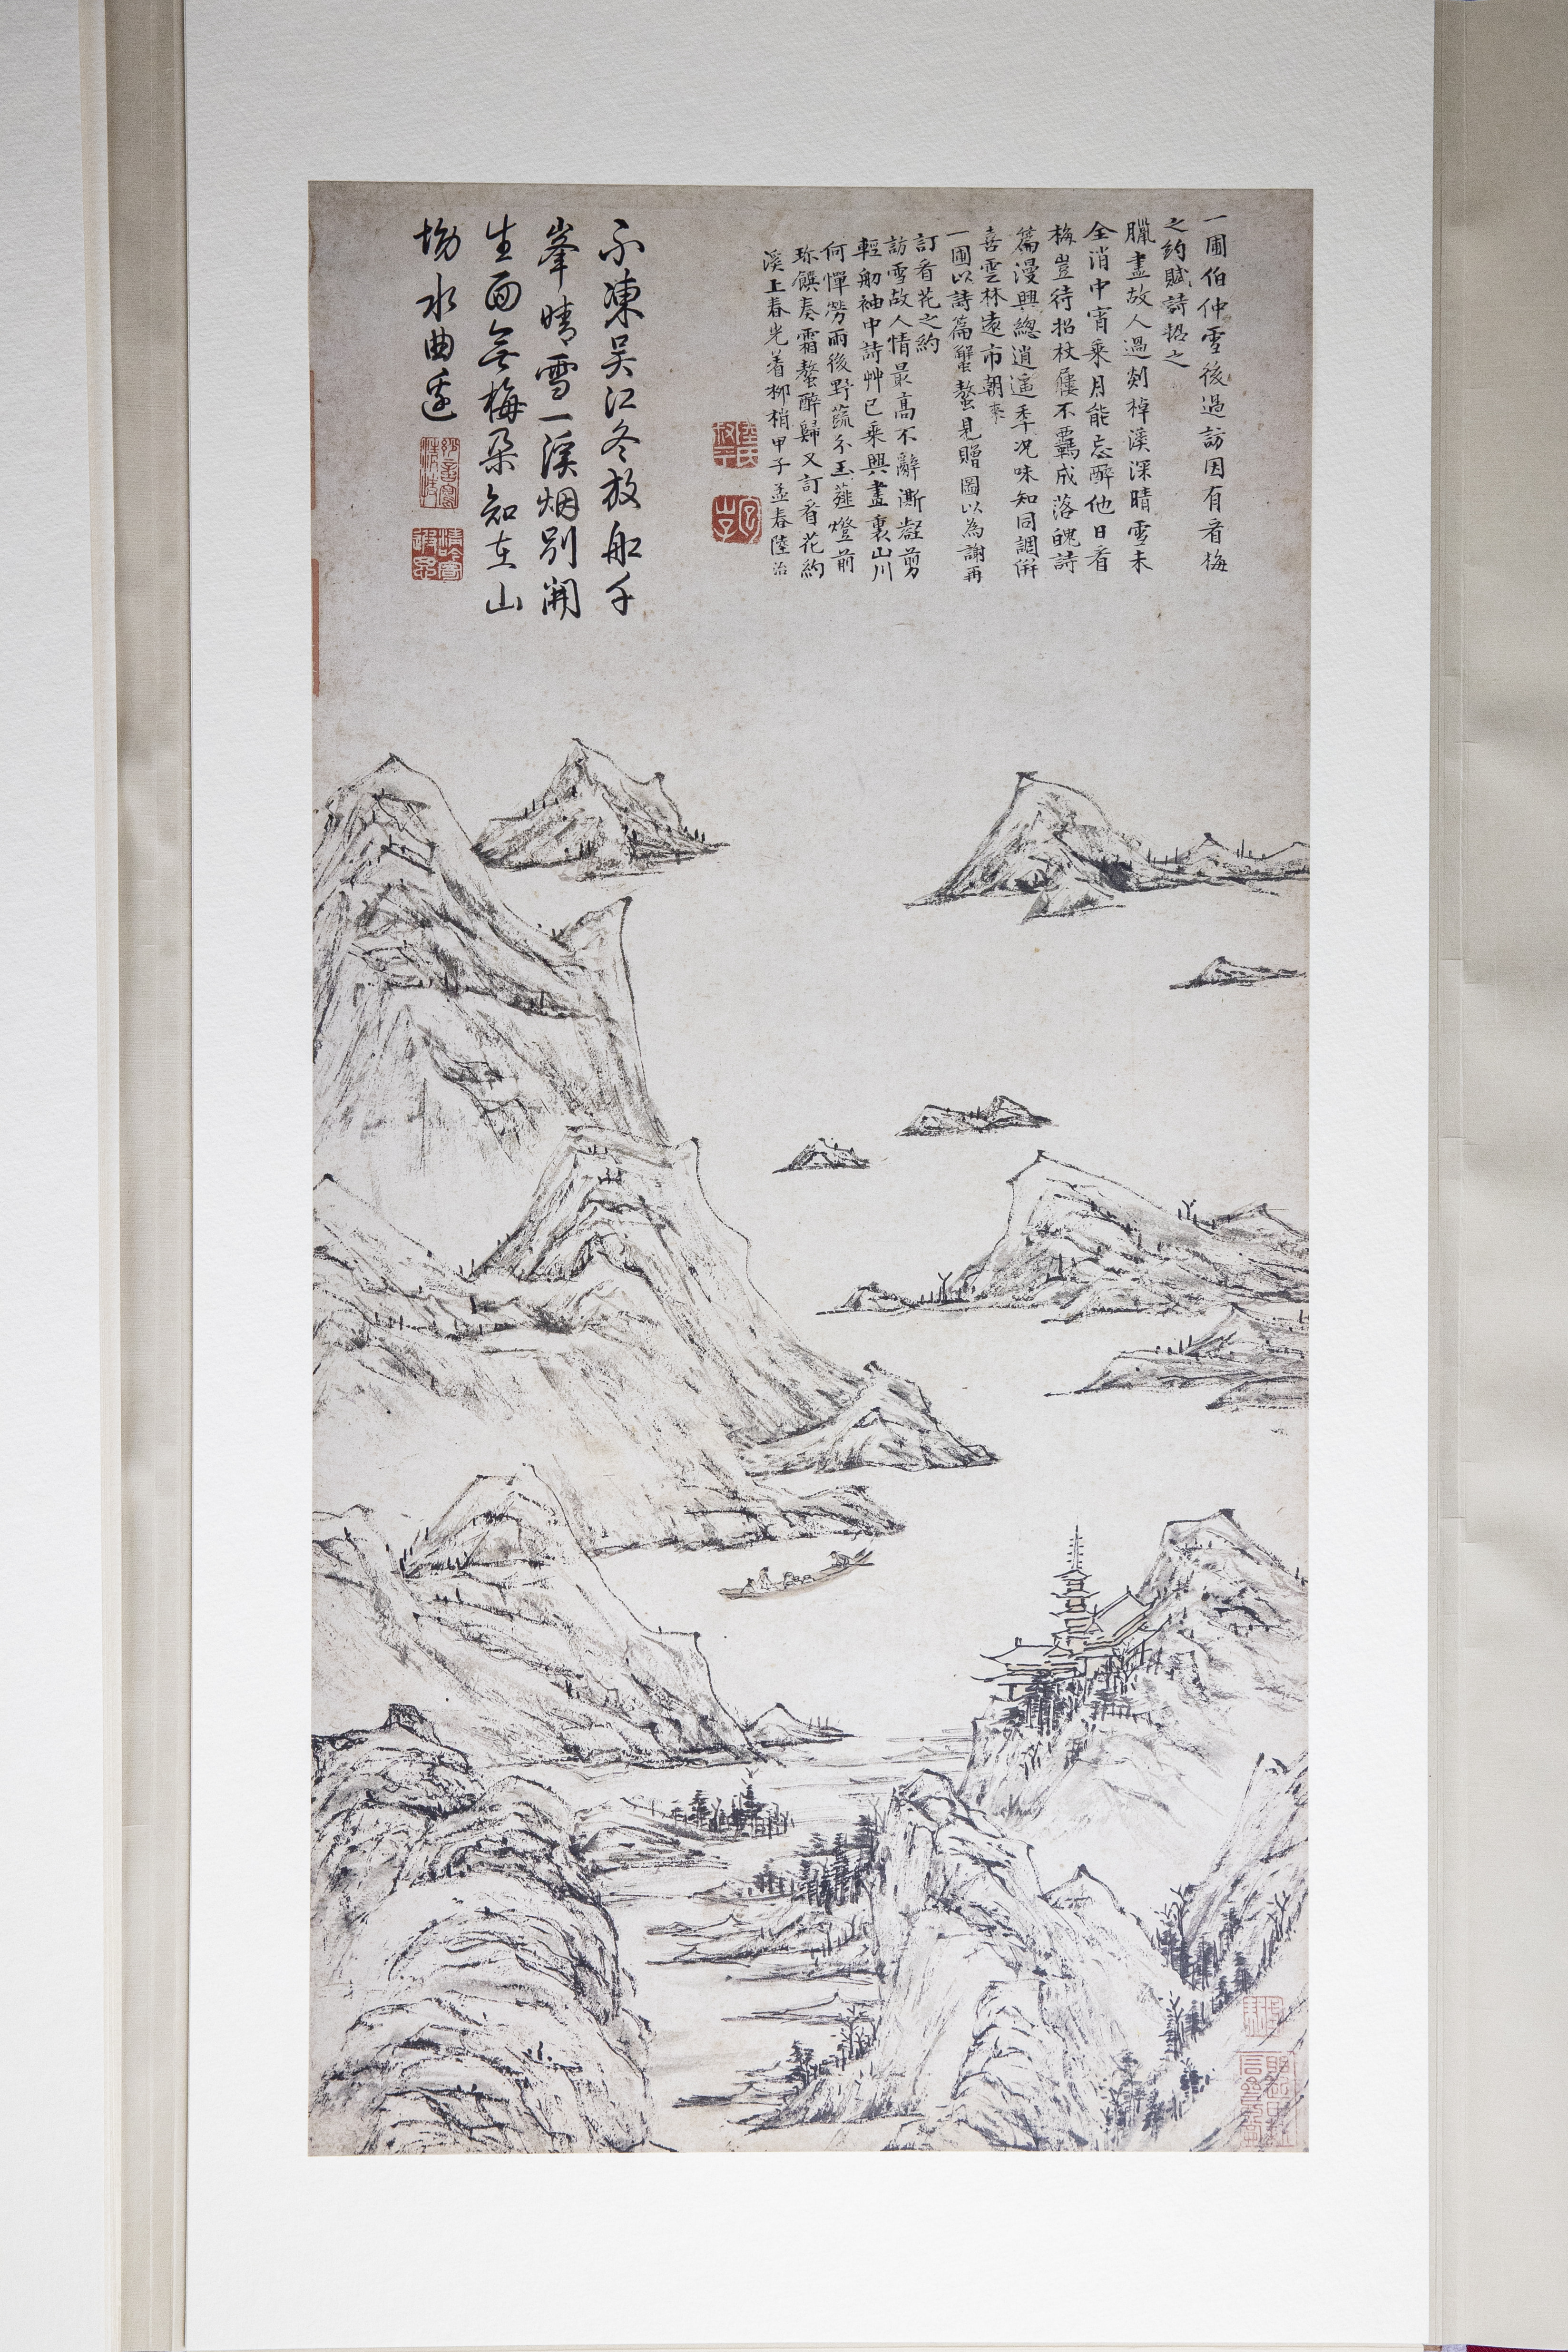 一圃伯仲雪後過訪因有看梅
之約賦詩招之
臘盡故人過剡棹溪深晴雪未
全消中宵乘月能忘醉他日看
梅豈待招杖屨不羈成落魄詩
篇漫興總逍遙季況味知同調併
喜雲林遠市朝
一圃以詩篇蟹螯見贈圖以為謝再
訂看花之約
訪雪故人情最高不辭澌凝剪
輕舠袖中詩艸已乘興畫裏山川
何憚勞雨後野蔬分玉薤燈前
珎饌奏霜螯醉歸又訂看花約
溪上春光着柳梢甲子孟春陸治
不凍吳江冬放船千
峯晴雪一溪烟別開
生面無梅朵知在山
坳水曲邊
陸氏叔平